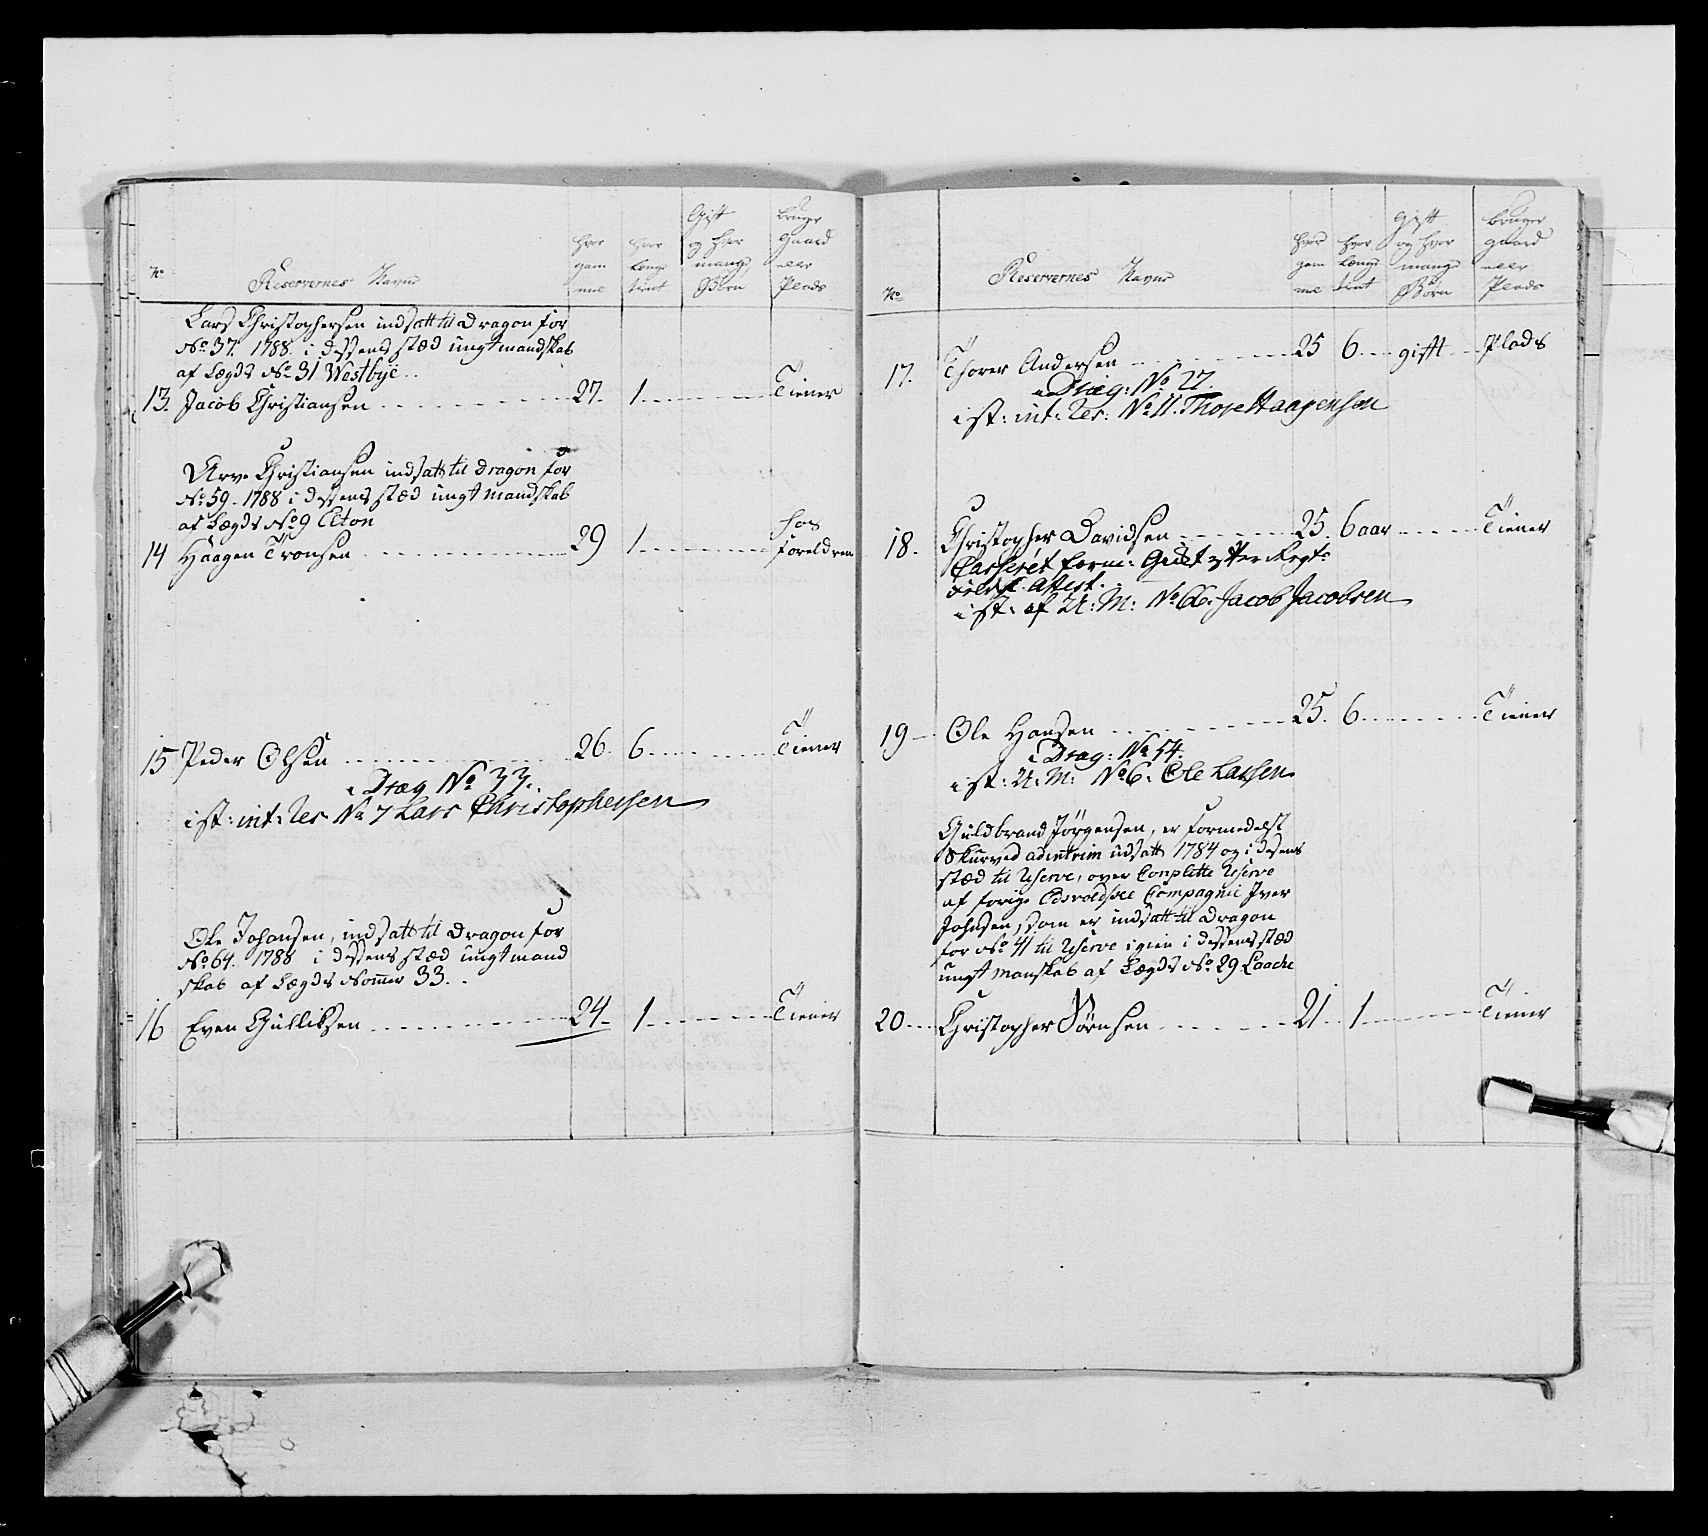 No
Reservernes Navne
hvor gam mel
hvor længe tient
Gift og hvor mange Børn
bruger gaard eller Plads
Lars Christophersen indsatt til Dragon for
No 37. 1788. i dessens stæd ungt mandskab
af Lægds No 31 Westbÿe..
13. Jacob Christiansen 27. 1 Tiener
Arve Christiansen indsatt til dragon for
No 59. 1788 i dessens stæd ungt mandskab
af Lægds No 9
14 Haagen Tronsen 29 1 hos foreldren
15 Peder Olsen 26. 6 Tiener
Drag No 33.
i st: int: Res No 7 Lars Christophersen
Ole Johansen, indsatt til Dragon for
No 64. 1788 i dessens stæd ungt mand
skab af Lægds Nommer 33..
16 Even Gulliksen 24 1 Tiener
No
Reservernes Navne
hvor gam mel
hvor længe tient
gift og hvor mange Børn
bruger gaard eller Plads
17. Thorer Andersen 25 6 gifft Plads
Drag: No 27.
i st: int: Res: No 11. Thore Haagensen
18. Christopher Davidsen 25. 6 aar Tiener
Casseret form: efter Regts
Attest.
i st: af U: M: No 66. Jacob Jacobsen
19 Ole Hansen 25. 6 Tiener
Drag: No 54.
i st: U: M: No 6. Ole Larsen
Guldbrand Jørgensen, er formedelst
Skurved adintrim udsatt 1784 og i dessens
stæd til Reserve, over Complette Reserve
af forige Edsvoldske Compagnie Iver
Johnsen, som er indsatt til Dragon
for No 41 til Reserve igien i dessens stæd
ungt manskab af Lægds No 29 Laache
20 Christopher Sørnsen 21 1 Tiener